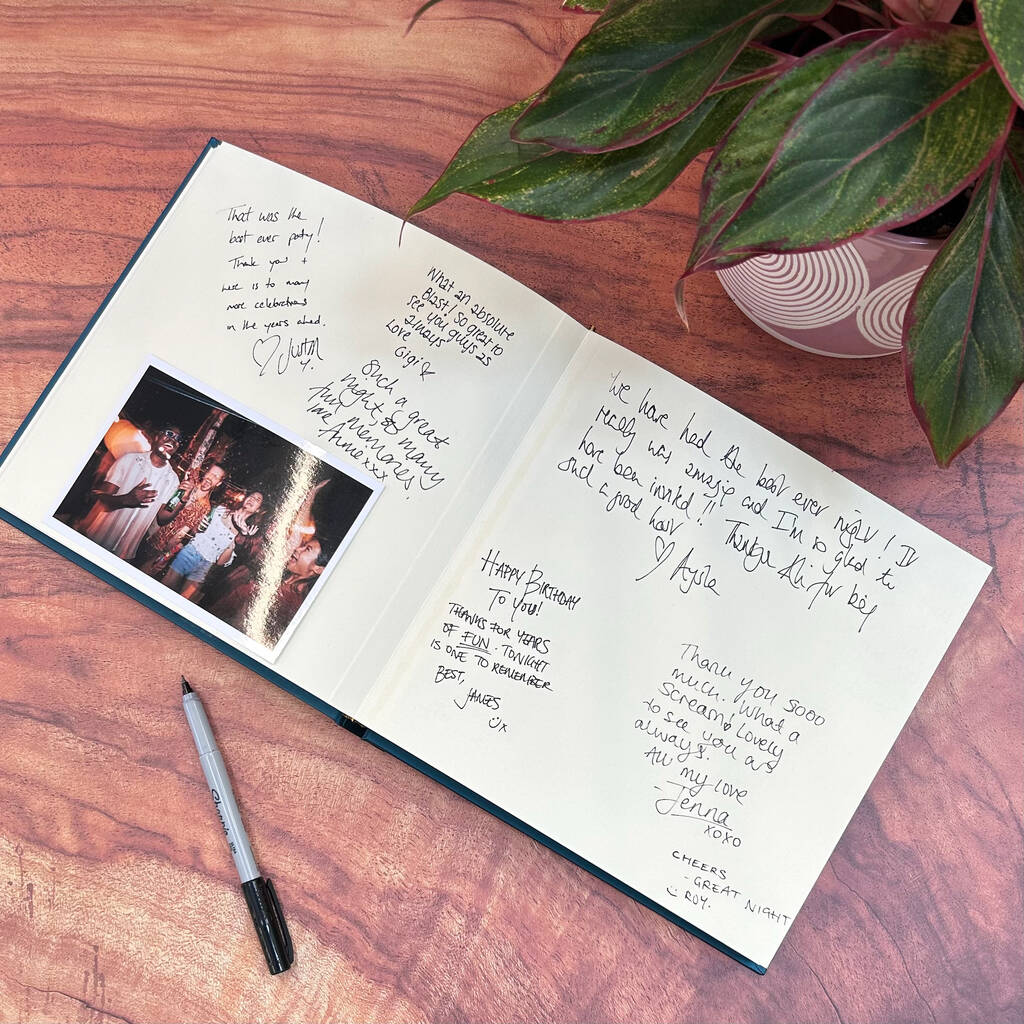 That was the
best ever party!
Thank you +
here is to many
more celebrations
in the years ahead.
What an absolute
Blast! So great to
see you guys as
always
Love
Gigi
Such a great
night & so many
fun memories!
love
Anne xxx
We have had the best ever night! It
really was amazing and I'm so glad to
have been invited!! Thankyou Ali for being
such a good host
Ayola
HAPPY BIRTHDAY
TO YOU!
THANKS FOR YEARS
OF FUN. TONIGHT
IS ONE TO REMEMBER
BEST,
JAMES
x
Thank you sooo
much. What a
scream! Lovely
to see you as
always.
All my love
- Jenna
xoxo
CHEERS
- GREAT NIGHT
ROY.
Sharpie